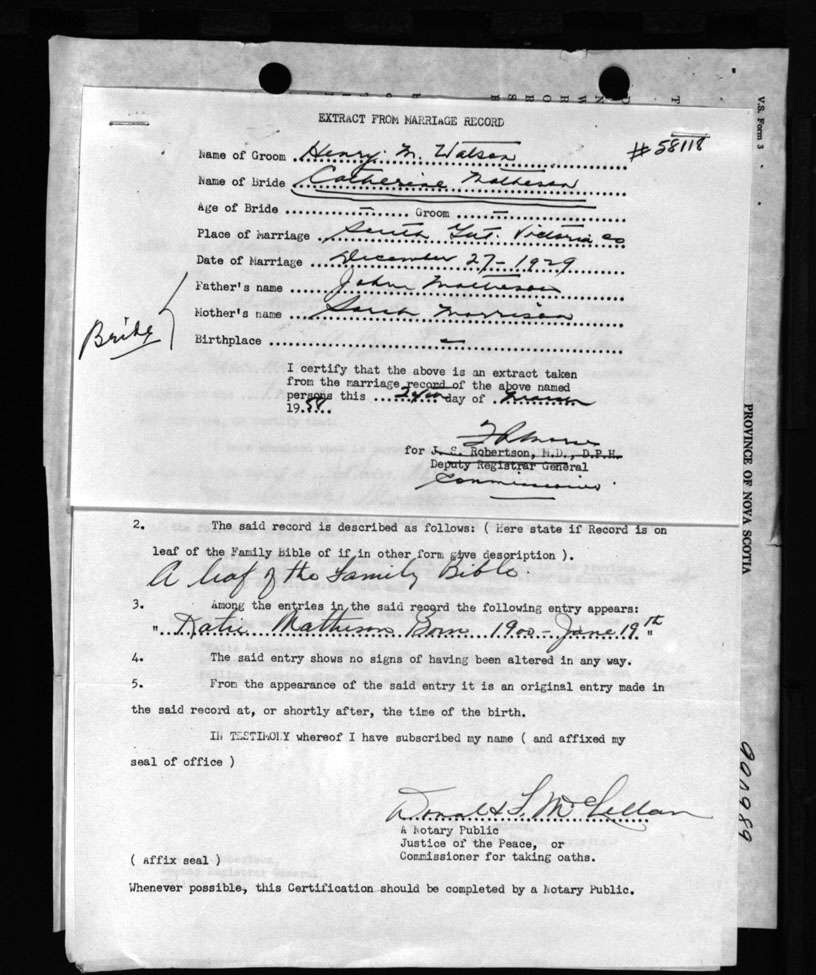 V.S. Form 3
PROVINCE OF NOVA SCOTIA
EXTRACT FROM MARRIAGE RECORD
#58118
Name of Groom Henry M. Watson
Name of Bride Catherine Matheson
Age of Bride — Groom —
Place of Marriage South Gut. Victoria Co
Date of Marriage December 27-1929
Father's name John Matheson
Mother's name Sarah Morrison
Birthplace —
Bride
I certify that the above is an extract taken
from the marriage record of the above named
persons this day of
19
for J. S. Robertson, M.D., D.P.H.
Deputy Registrar General
Commissioner
2. The said record is described as follows: ( Here state if Record is on
leaf of the Family Bible of if in other form give description ).
A leaf of the Family Bible.
3. Among the entries in the said record the following entry appears:
" Katie Matheson Born 1900 - June 19th "
4. The said entry shows no signs of having been altered in any way.
5. From the appearance of the said entry it is an original entry made in
the said record at, or shortly after, the time of the birth.
IN TESTIMOLY whereof I have subscribed my name ( and affixed my
seal of office )
Donald F. McLellan
A Notary Public
Justice of the Peace, or
Commissioner for taking oaths.
( Affix seal )
Whenever possible, this Certification should be completed by a Notary Public.
901989